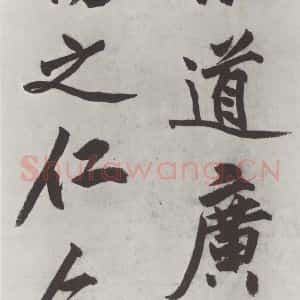 道廣
之仁
Shufawang.CN